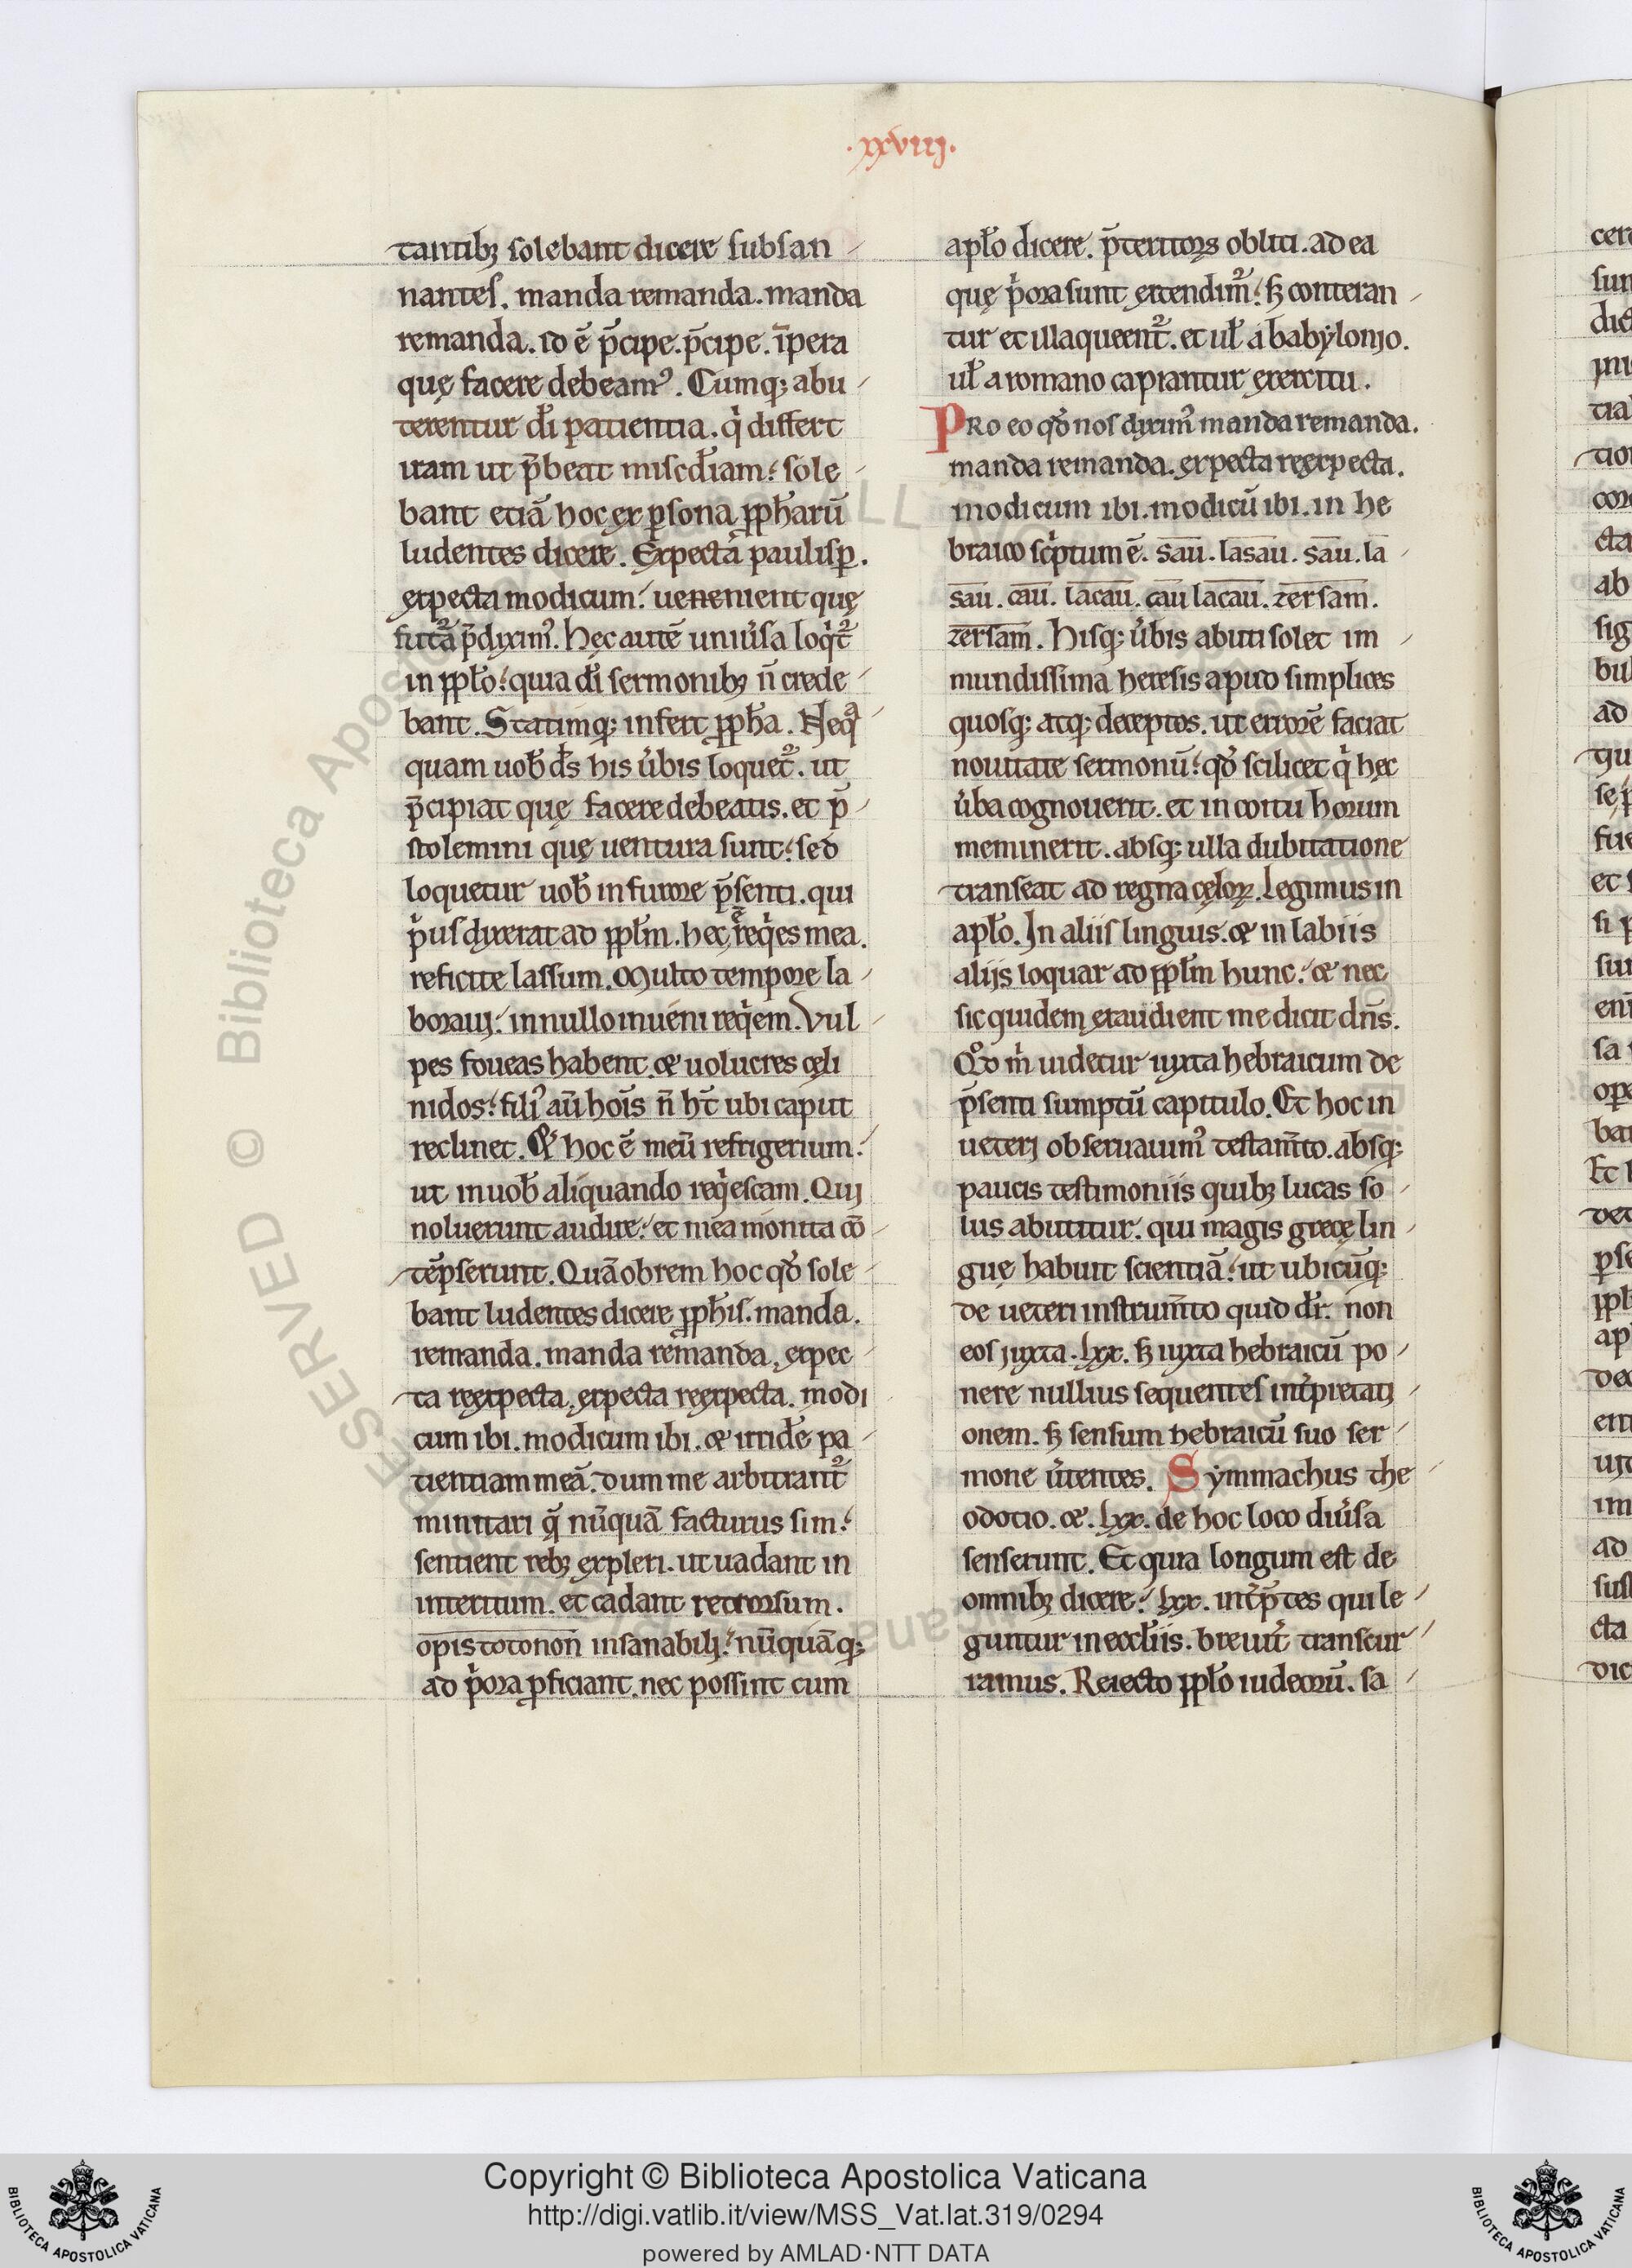 .xxviij.
tantibꝫ solebant dicere subsan
nantes. manda remanda. manda
remanda. id ē p̄cipe. p̄cipe. īpera
quę facere debeamꝰ. Cumqꝫ abu
terentur dī patientia. qͥ differt
iram ut p̄beat miscd̄iam. sole
bant etiā hoc ex ꝑsona ꝓph̄arū
ludentes dicere. Expecta paulisꝑ.
expecta modicum. ueneniient quę
fut᷑a p̄diximꝰ. Hęc autē uniu̓sa loqͥt᷑
in pplo. quia dī sermonibꝫ n̄ crede
bant. Statimqꝫ infert ꝓph̄a. Neqͣ
quam uob̄ ds̄ his u̓bis loquet᷑. ut
p̄cipiat quę facere debeatis. et p̄
stolemini quę uentura sunt. sed
loquetur uob̄ in furore p̄senti. qui
pͥus dixerat ad ppl̄m. hec ē reqͥes mea.
reficite lassum. Multo tempore la
borauj. in nullo inueni reqͥem. Vul
pes foueas habent. & uolucres cęli
nidos. filiꝰ aū hoīs n̄ ht̄ ubi caput
reclinet. Et hoc ē meū refrigerium.
ut in uob̄ aliquando reqͥescam. Quj
noluerunt audire. et mea monita cō
tēpserunt. Quāobrem hoc qd̓ sole
bant ludentes dicere ꝓph̄is. manda.
remanda. manda remanda, expec
ta reexpecta, expecta reexpecta. modi
cum ibi. modicum ibi. & irride̓ pa
tientiam meā. dum me arbitrant᷑
minitari q̄ nūquā facturus sim.
sentient rebꝫ expleri. ut uadant in
interitum. et cadant retrorsum.
opistotonon insanabilj. nūquāqꝫ
ad pͥora ꝓficiant. nec possint cum
apl̄o dicere. p̄teritorꝫ obliti. ad ea
quę pͥora sunt extendimꝰ. sꝫ conteran
tur et illaqueent᷑. et ul̄ a babylonjo.
ul̄ a romano capiantur exercitu.
Pro eo qd̓ nos diximꝰ manda remanda.
manda remanda. expecta reexpecta.
modicum ibi. modicū ibi. in he
braico scͥptum ē. sau. lasau. sau. la
sau. cau. lacau. cau lacau. zersam.
zersam. Hisqꝫ u̓bis abuti solet im
mundissima heresis apud simplices
quosqꝫ atqꝫ deceptos. ut errorē faciat
nouitate sermonū. qd̓ scilicet qͥ hęc
u̓ba cognouerit. et in coitu horum
meminerit. absqꝫ ulla dubitatione
transeat ad regna cęloꝝ. Legimus in
apl̄o. In aliis linguis. & in labiis
alijs loquar ad ppl̄m hunc. & nec
sic quidem exaudient me dicit dn̄s.
Qd̓ mͥ uidetur iuxta hebraicum de
p̄senti sumptū capitulo. Et hoc in
ueterj obseruauimꝰ testam̄to. absqꝫ
paucis testimoniis quibꝫ lucas so
lus abutitur. qui magis grecę lin
guę habuit scientiā. ut ubicūqꝫ
de ueteri instrum̄to quid dr̄. non
eos juxta .lxx. sꝫ iuxta hebraicū po
nere nullius sequentes int̓pretatj
onem. sꝫ sensum hebraicū suo ser
mone u̓tentes. Symmachus the
odotio. & .lxx. de hoc loco diu̓sa
senserunt. Et quia longum est de
omnibꝫ dicere. lxx. int̓p̄tes qui le
guntur in eccl̄iis. breuit̓ transcur
ramus. Reiecto pplo iudeorū. sa
Copyright © Biblioteca Apostolica Vaticana
http://digi.vatlib.it/view/MSS_Vat.lat.319/0294
powered by AMLAD·NTT DATA
BIBLIOTECA APOSTOLICA VATICANA
BIBLIOTECA APOSTOLICA VATICANA